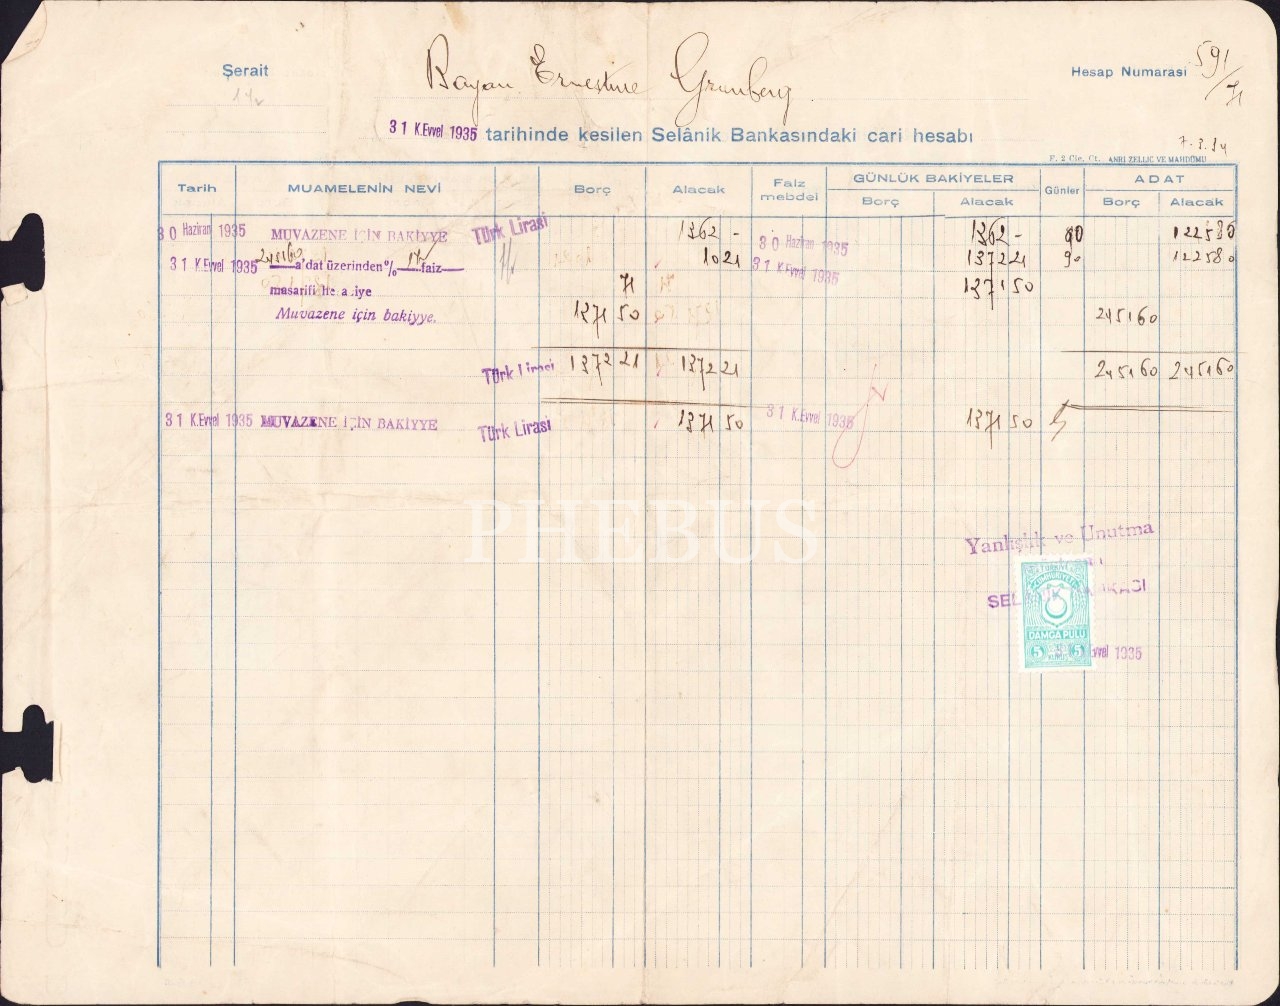 Şerait
Bayan Ernestine Grunberg
Hesap Numarası 591/71
1 1/2
31 K.Evvel 1935 tarihinde kesilen Selânik Bankasındaki cari hesabı
7.3.34
F. 2 Cie. Ct. ANRI ZELLIC VE MAHDUMU
Tarih MUAMELENİN NEVİ Borç Alacak Faiz mebdei GÜNLÜK BAKİYELER Günler ADAT
Borç Alacak Borç Alacak
30 Haziran 1935 MUVAZENE İÇİN BAKİYYE Türk Lirasi 1362 - 30 Haziran 1935 1362 - 90 122580
31 K.Evvel 1935 245160 a'dat üzerinden % 1 1/2 faiz 1021 31 K.Evvel 1935 137221 90 122580
masarifi 71 137150
Muvazene için bakiyye. 1371 50 245160
Türk Lirasi 1372 21 1372 21 245160 245160
31 K.Evvel 1935 MUVAZENE İÇİN BAKİYYE Türk Lirasi 1371 50 31 K.Evvel 1935 1371 50
PHEBUS
Yanlışlık ve Unutma
TÜRKİYE
CUMHURİYETİ
DAMGA PULU
5 5
1935